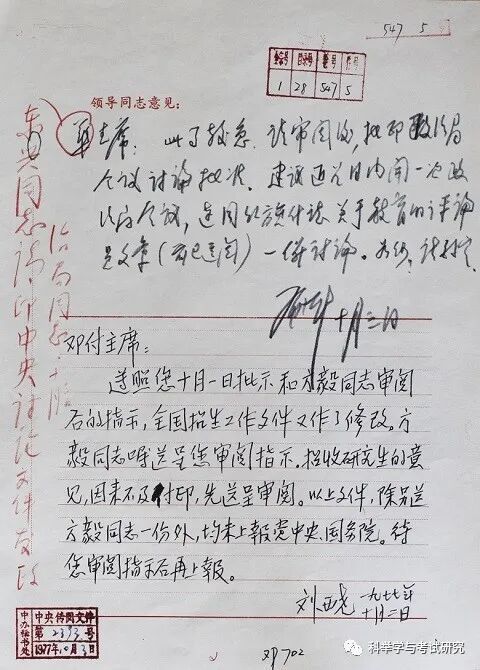 547 5
全宗号 目录号 卷号 件号
1 28 547 5
领导同志意见：
华主席：此事较急，请审阅后，批印政治局
会议讨论批准。建议近几日内开一次政
治局会议，连同 关于教育的评论
员文章（前已送阅）一併讨论。如何，请批示。
十月三日
东兴同志：请印中央讨论文件发政
治局同志。
邓付主席：
遵照您十月一日批示和方毅同志审阅
后的指示，全国招生工作文件又作了修改，方
毅同志嘱送呈您审阅指示。招收研究生的意
见，因来不及付印，先送呈审阅。以上文件，除另送
方毅同志一份外，均未上報党中央、国务院。待
您审阅指示后再上報。
刘西尧 一九七七年
十月二日
中办秘书处
中央传阅文件
第 2393 号
1977年10月3日
邓702
科举学与考试研究